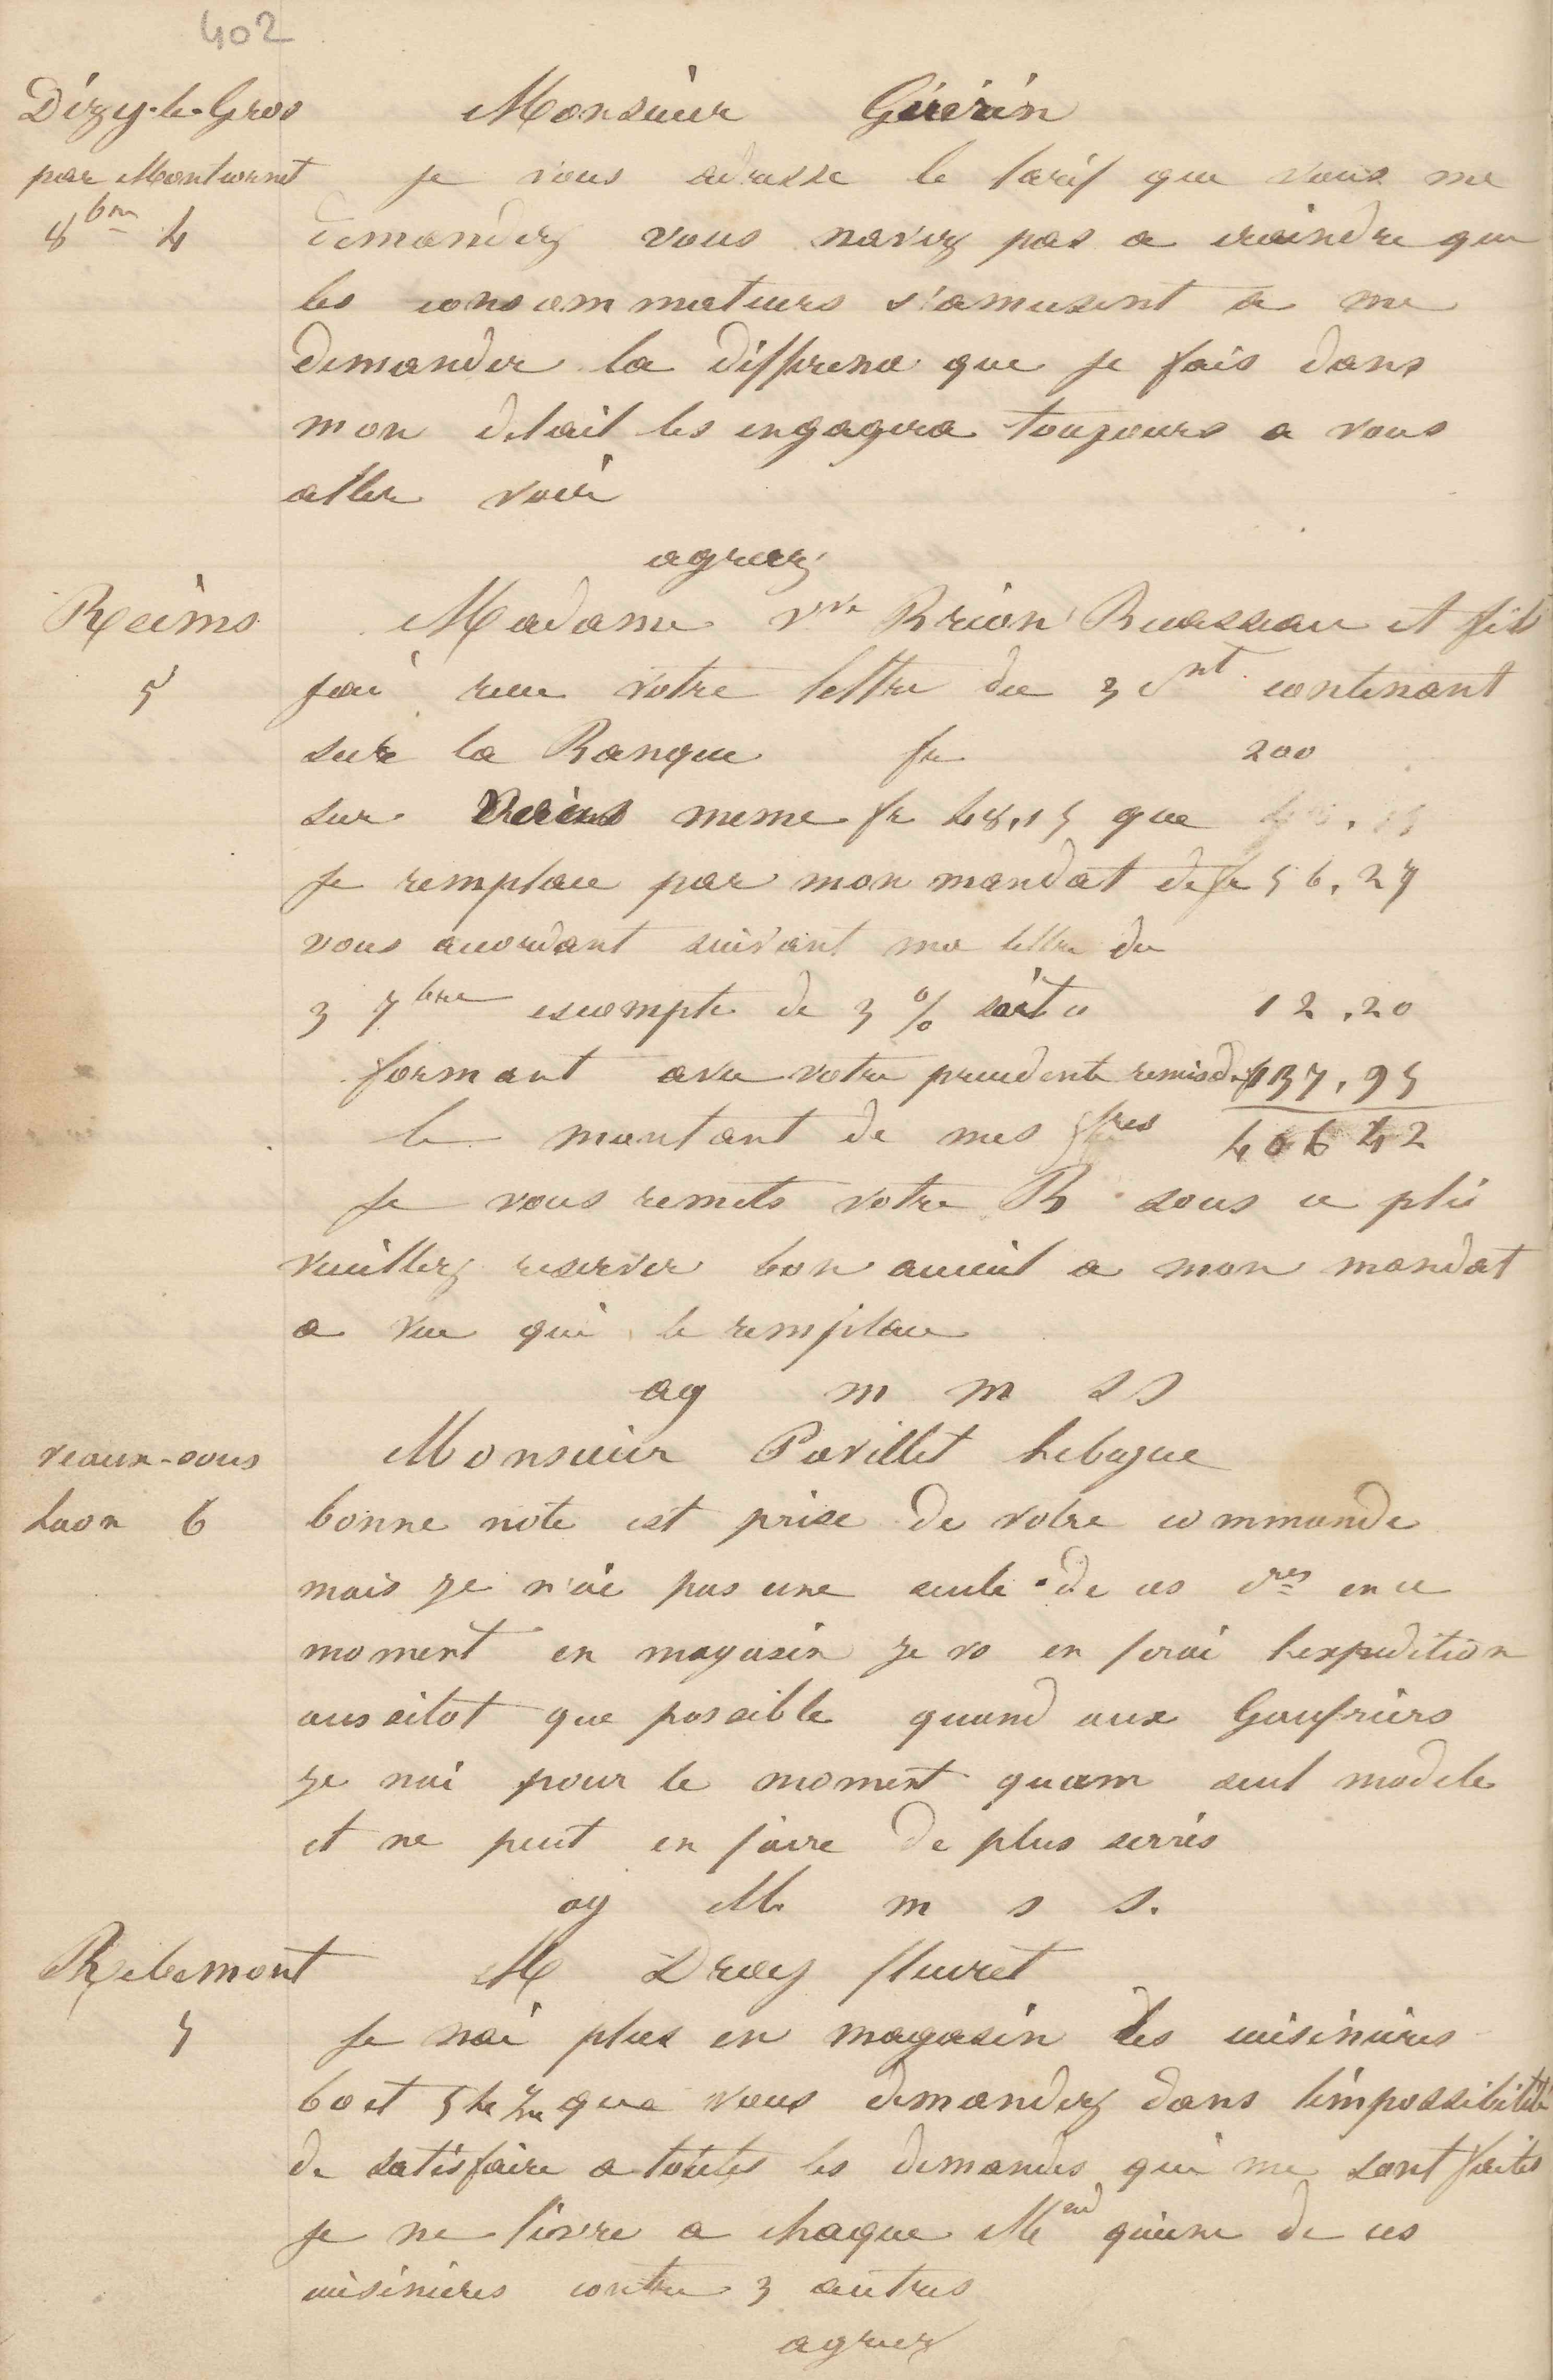 402
Dizy-le-Gros Monsieur Guerin
par Montcornet je vous adresse le tarif que vous me
8bre 4 demandez vous navez pas a craindre que
les consommateurs s'amusent a me
demander la diffrence que je fais dans
mon detail les engagera toujours a vous
aller voir
agreez
Reims Madame Vve Brion et fils
5 jai recu votre lettre du 3 ct contenant
sur la Banque fr 200
sur Reims meme fr 48,15 que
je remplace par mon mandat de fr 56,27
vous accordant suivant ma lettre du
3 7bre escompte de 3 % soit a 12,20
formant avec votre precedente remise de fr 137,95
le montant de mes fres 406 42
Je vous remets votre B sous ce pli
veuillez reserver bon accueil a mon mandat
a vue qui le remplace
ag m m s s
veaux-sous Monsieur Pavillet Lebegue
Laon 6 bonne note est prise de votre commande
mais je n'ai pas une seule de ces en ce
moment en magasin je vs en ferai lexpedition
aussitot que possible quand aux Gaufriers
je nai pour le moment quam seul modele
et ne peut en faire de plus serrés
ag M m s s.
Ribemont M Druy fleuret
5 Je nai plus en magasin les cuisinieres
60 et que vous demandez dans limpossibilité
de satisfaire a toutes les demandes qui me sont faites
je ne livre a chaque Md qu'une de ces
cuisinieres contre 3 autres
agreez